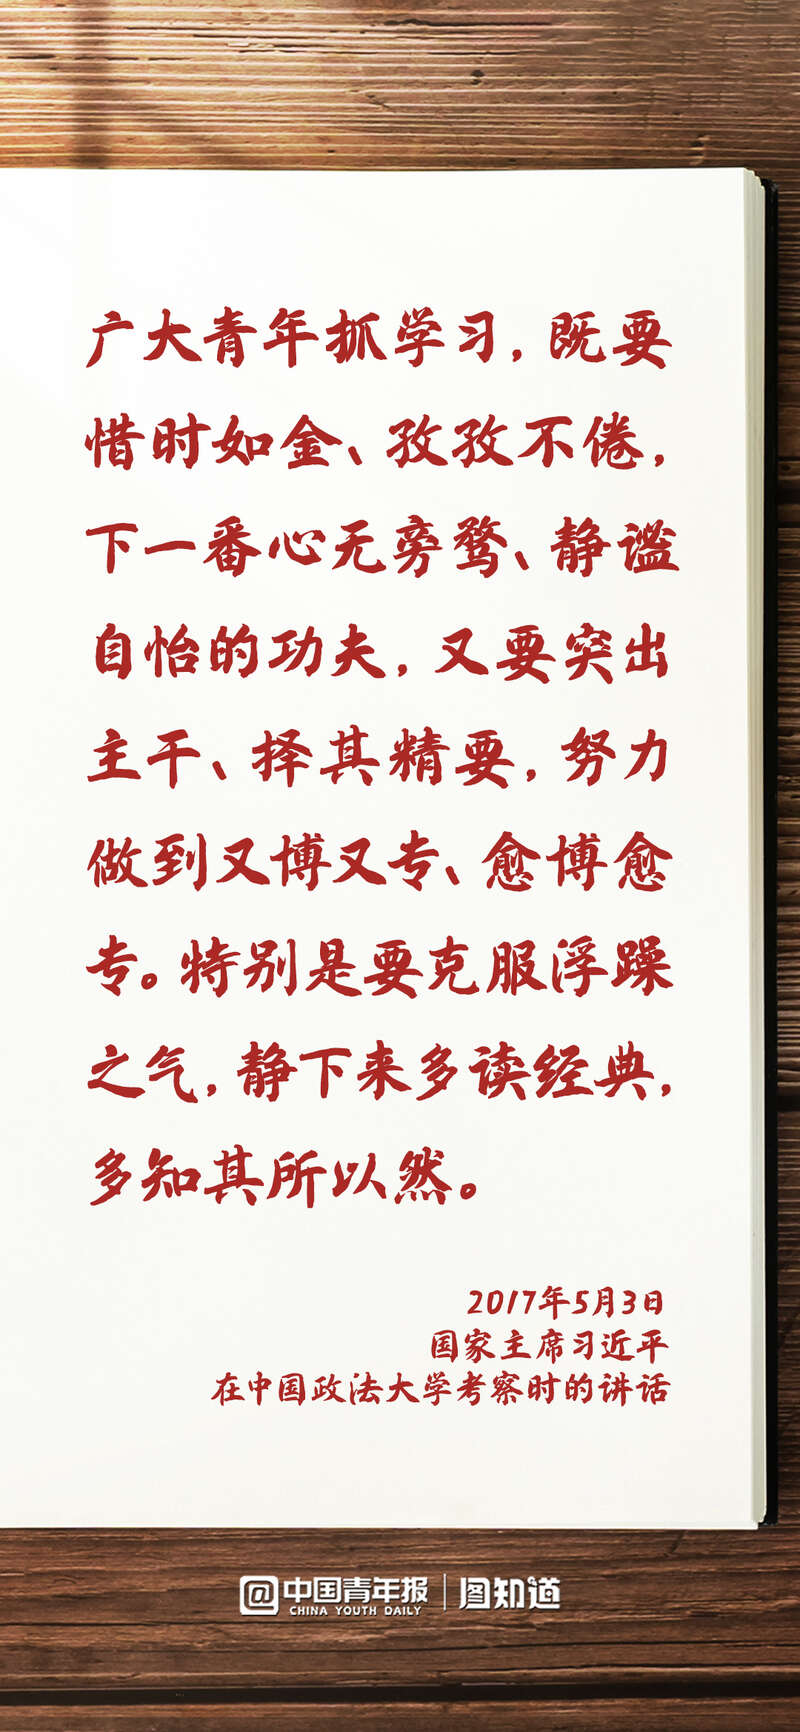 广大青年抓学习，既要
惜时如金、孜孜不倦，
下一番心无旁骛、静谧
自怡的功夫，又要突出
主干、择其精要，努力
做到又博又专、愈博愈
专。特别是要克服浮躁
之气，静下来多读经典，
多知其所以然。
2017年5月3日
国家主席习近平
在中国政法大学考察时的讲话
@中国青年报
CHINA YOUTH DAILY
图知道